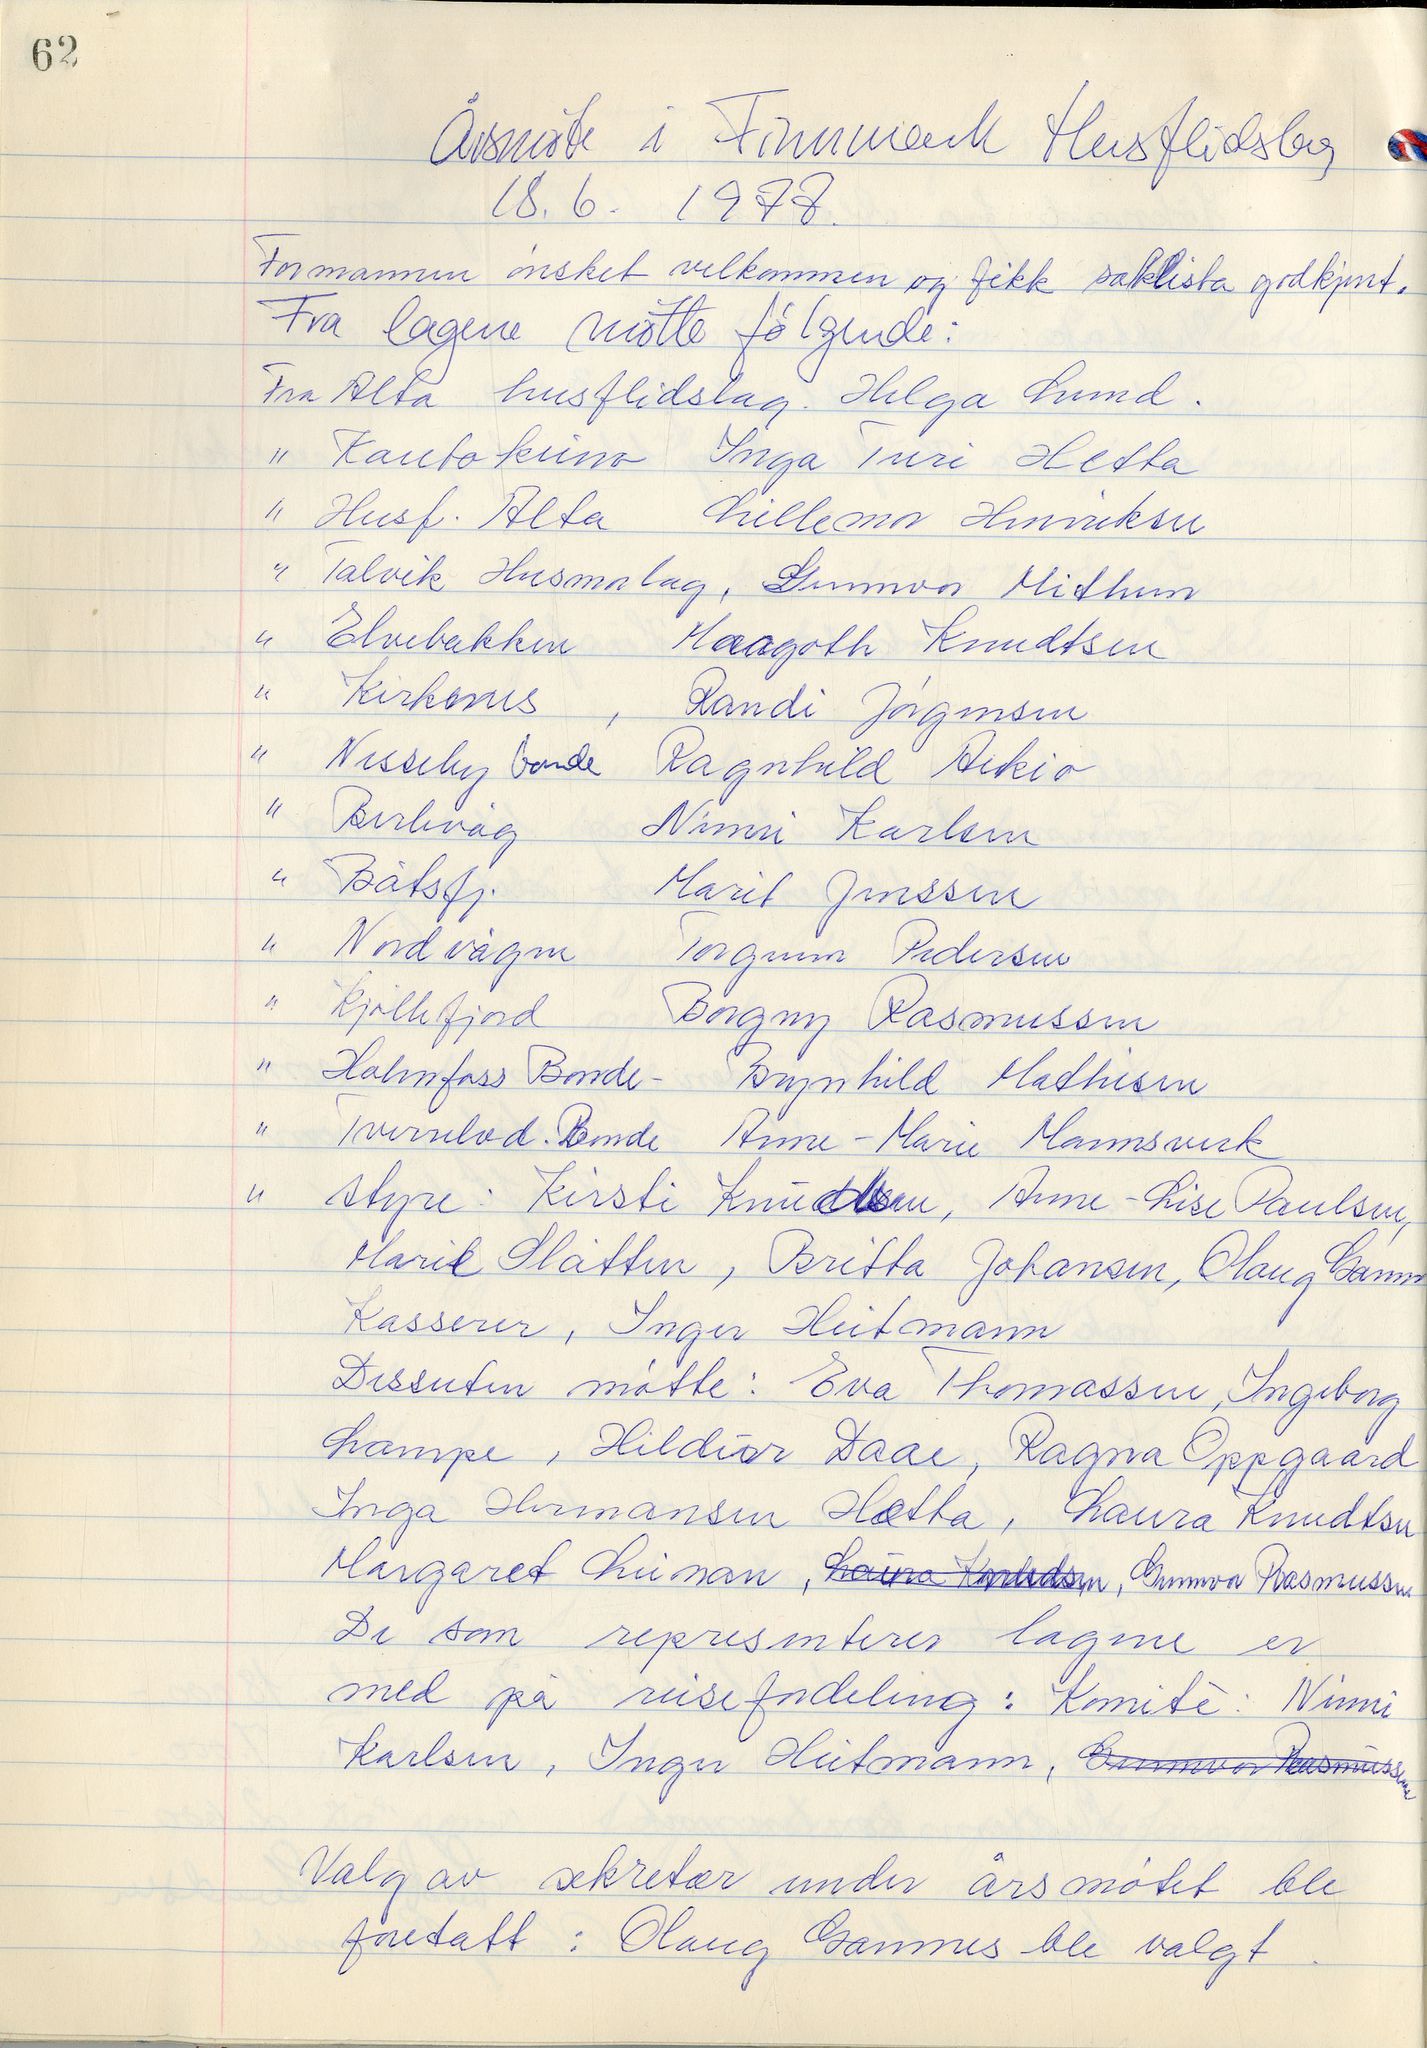 62
Årsmöte i Finnmark Husflidslag
18.6. 1978.
Formannen önsket velkommen og fikk saklista godkjent.
Fra lagene mötte fölgende:
Fra Alta husflidslag. Helga Lund.
" Kautokeino Inga Turi Hetta
" Husf. Alta Lillemor Henriksen
" Talvik Husmorlag, Gunnvor Mithun
" Elvebakken Maagoth Knudtsen
" Kirkenes, Randi Jörgensen
" Nesseby bonde Ragnhild Aikio
" Berlevåg Ninni Karlsen
" Båtsfj. Marit Jenssen
" Nordvågen Torgunn Pedersen
" Kjöllefjord Borgny Rasmussen
" Holmfoss Bonde- Brynhild Mathisen
" Tverrelvd. Bonde Anne-Marie Mannsverk
" styre: Kirsti Knudtsen, Anne-Lise Paulsen,
Marit Slåtten, Britta Johansen, Olaug
Kasserer, Inger Heitmann
Dessuten mötte: Eva Thomassen, Ingeborg
Lampe, Hildur Daae, Ragna Oppgaard
Inga Hermansen Hætta, Laura Knudtsen
Margaret Liiman, Laura Knudtsen, Gunnvor Rasmussen
De som representerer lagene er
med på reisefordeling: Komité: Ninni
Karlsen, Inger Heitmann, Gunnvor Rasmussen
Valg av sekretær under årsmötet ble
foretatt: Olaug Gamnes ble valgt.